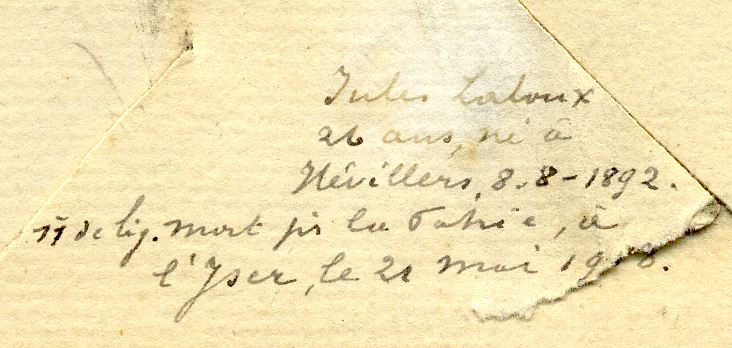 Jules Laloux
26 ans, né à
Névillers, 8-8-1892.
11 de lig. mort pr la Patrie, à
l'Yser, le 21 mai 1918.